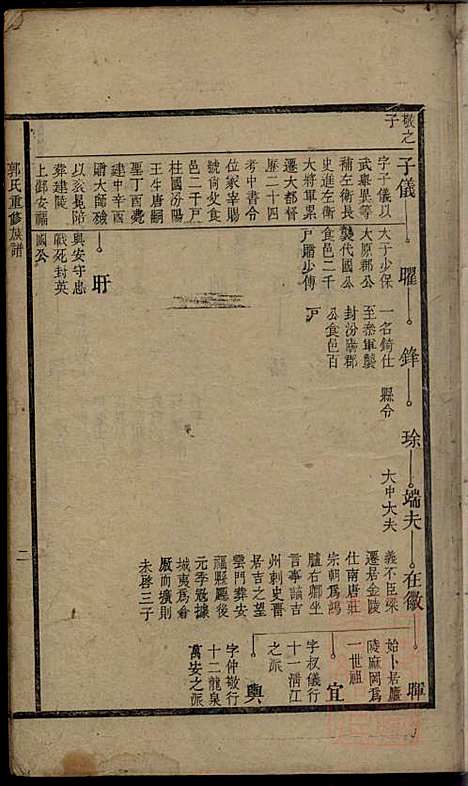 敬之子
子儀
字子儀以
武舉異等
補左衛長
史進左衛
大將軍累
遷大都督
歷二十四
考中書令
位冢宰賜
號尚父食
邑二千戶
柱國汾陽
王生唐嗣
聖丁酉薨
建中辛酉
贈大師
以衮冕陪
葬建陵
上鄉安福
曜
大于少保
太原郡公
襲代國公
食邑二千
戶贈少傅
旰
與安守忠
戰死封英
國公
鋒
一名錡仕
至叅軍襲
封汾陽郡
公食邑百
戸
琭
縣令
端夫
大中大夫
在徽
義不臣梁
遷居金陵
仕南唐莊
宗朝爲鴻
臚右卿坐
言事謫吉
州刺史晋
居吉之望
雲門葬安
福縣驛後
元季冦據
城夷爲倉
厫而壙則
未啓三子
暉
始卜居廬
陵麻岡爲
一世祖
宜
字权儀行
十一淸江
之派
興
字仲敬行
十二龍泉
萬安之派
郭氏重修族譜
二